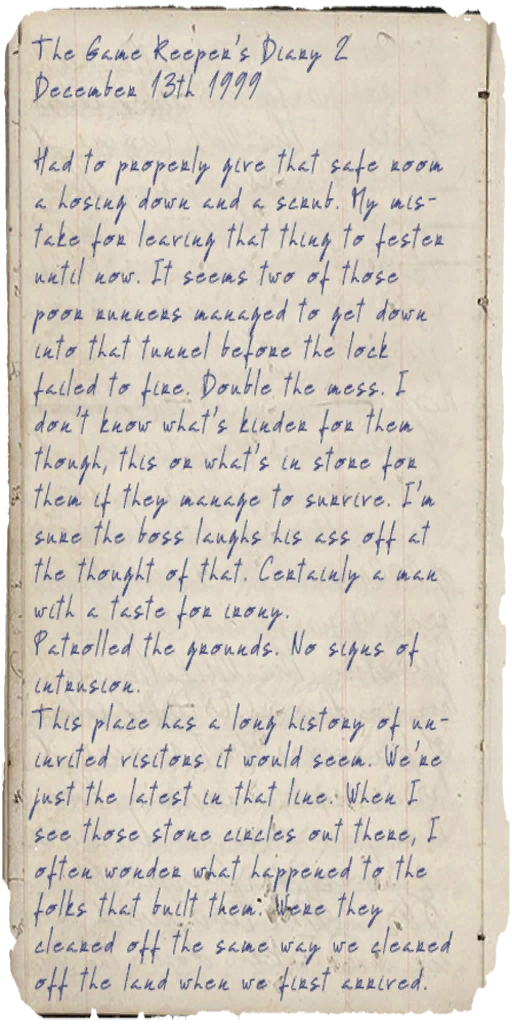 The Game Keeper's Diary 2
December 13th 1999

Had to properly give that safe room
a hosing down and a scrub. My mis-
take for leaving that thing to fester
until now. It seems two of those
poor runners managed to get down
into that tunnel before the lock
failed to fire. Double the mess. I
don't know what's kinder for them
though, this or what's in store for
them if they manage to survive. I'm
sure the boss laughs his ass off at
the thought of that. Certainly a man
with a taste for irony.
Patrolled the grounds. No signs of
intrusion.
This place has a long history of un-
invited visitors it would seem. We're
just the latest in that line. When I
see those stone circles out there, I
often wonder what happened to the
folks that built them. Were they
cleared off the same way we cleared
off the land when we first arrived.